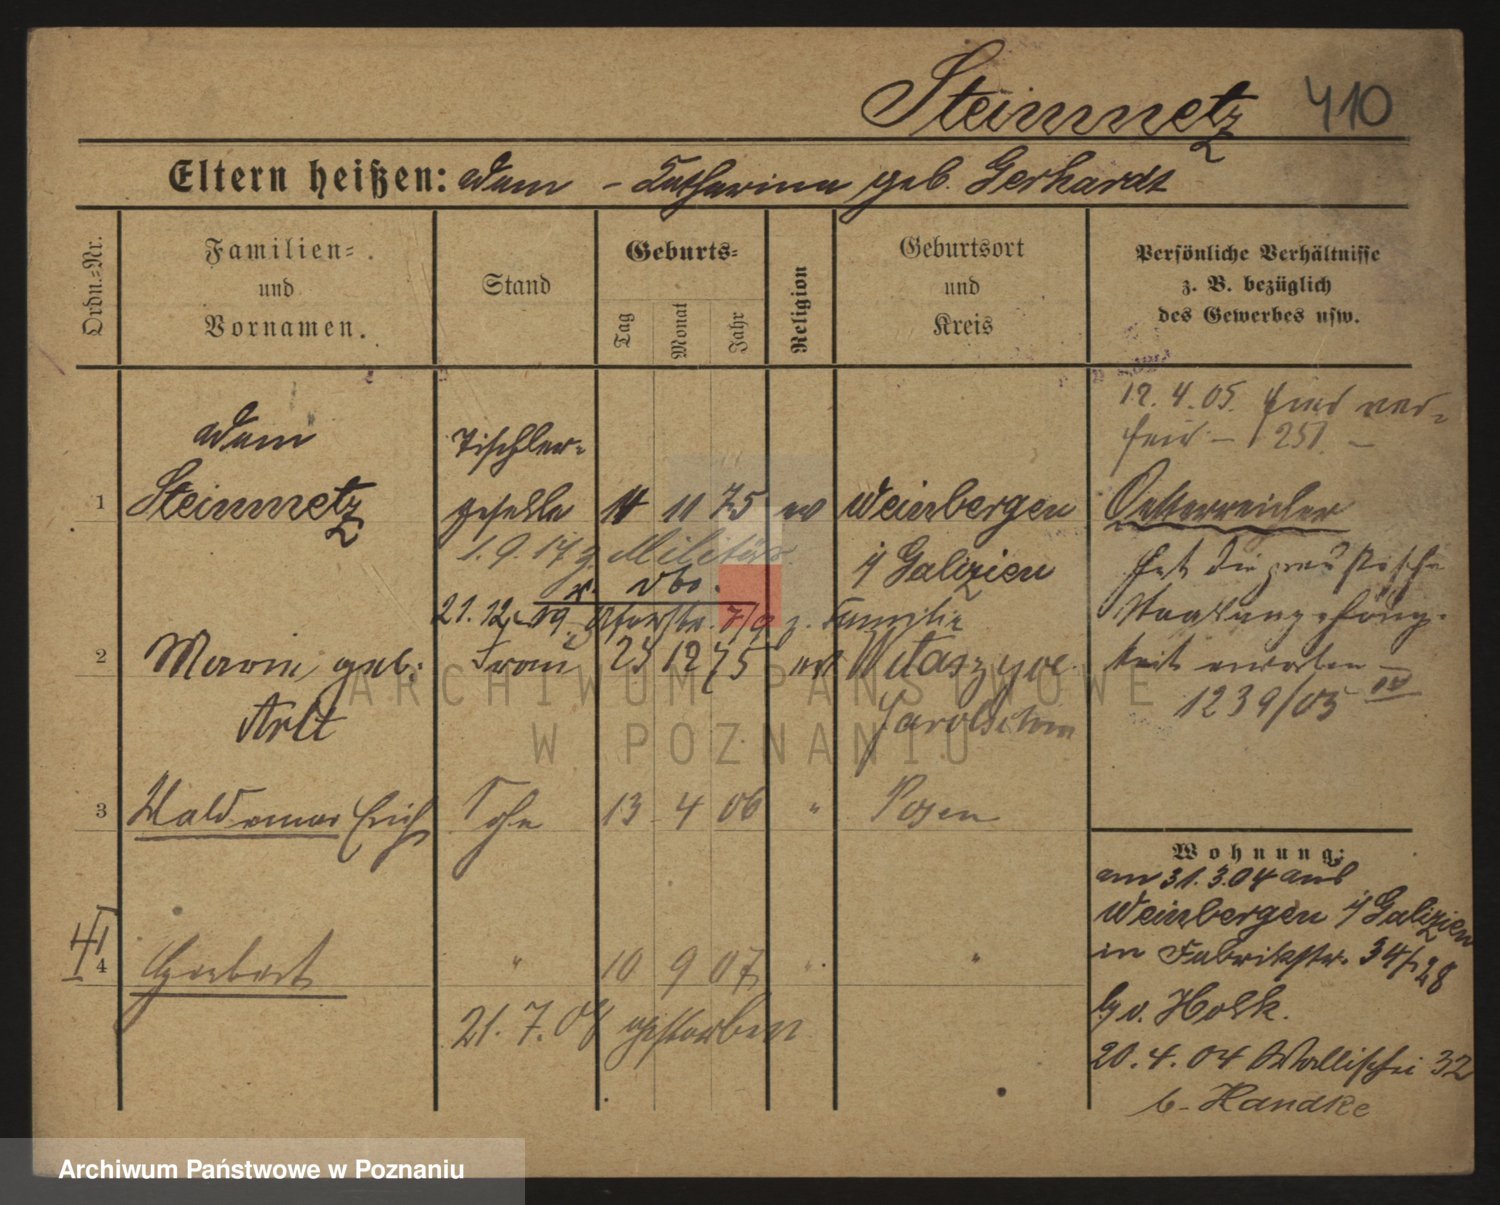 Steinmetz 410
Eltern heißen: Adam - Katharina geb. Gerhardt
Ordn.-Nr.
Familien- und Vornamen.
Stand
Geburts-
Tag Monat Jahr
Religion
Geburtsort und Kreis
Persönliche Verhältnisse
z. B. bezüglich
des Gewerbes usw.
12. 4. 05.
251. -
Adam Tischler-
1 Steinmetz geselle 11 11 75 ev Weinbergen Oesterreicher
1. 9. 14 z. Militär i/ Galizien hat die preußische
21. 12. 7/9 z. Familie Staatsangehörig-
2 Marie geb: Frau 23 12 75 ev Witaszyce keit
Arlt Jarotschin 1239/05
3 Waldemar Erich Sohn 13 4 06 " Posen
Wohnung:
am 31. 3. 04 aus
Weinbergen i/ Galizien
4 Herbert " 10 9 07 " "
in Fabrikstr. 34/ 28
21. 7. 08 gestorben
b/ v. Holk.
20. 4. 04 Wallischei 32
b. Handke
ARCHIWUM PAŃSTWOWE
W POZNANIU
Archiwum Państwowe w Poznaniu